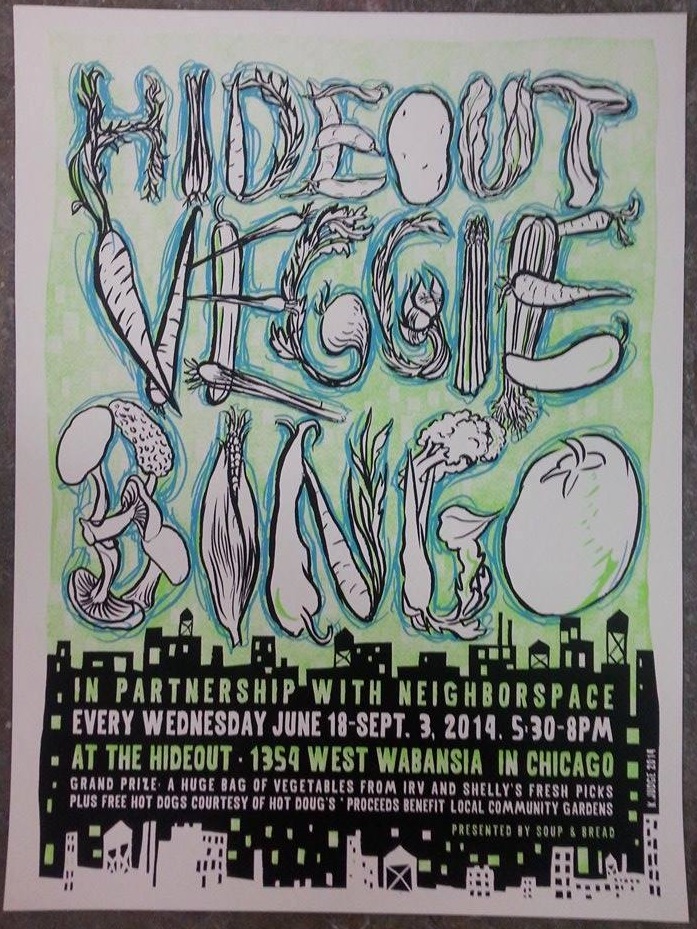 HIDEOUT
VEGGIE
BINGO
IN PARTNERSHIP WITH NEIGHBORSPACE
EVERY WEDNESDAY JUNE 18-SEPT. 3, 2014. 5:30-8PM
AT THE HIDEOUT · 1354 WEST WABANSIA IN CHICAGO
GRAND PRIZE· A HUGE BAG OF VEGETABLES FROM IRV AND SHELLY'S FRESH PICKS
PLUS FREE HOT DOGS COURTESY OF HOT DOUG'S · PROCEEDS BENEFIT LOCAL COMMUNITY GARDENS
PRESENTED BY SOUP & BREAD
K JUDGE 2014